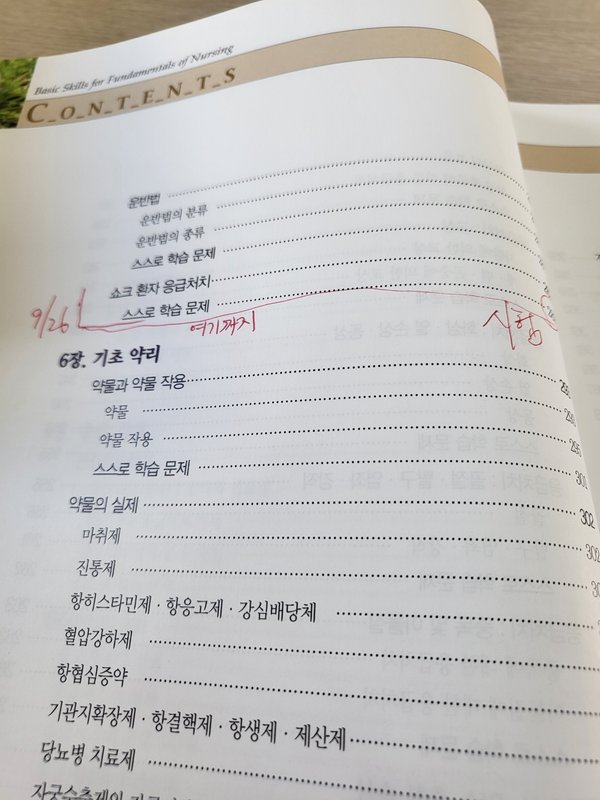 Basic Skills for Fundamentals of Nursing
C_O_N_T_E_N_T_S
운반법
운반법의 분류
운반법의 종류
스스로 학습 문제
쇼크 환자 응급처치
스스로 학습 문제
9/26 여기까지 시험
6장. 기초 약리
약물과 약물 작용
약물
약물 작용 295
스스로 학습 문제 301
약물의 실제 302
마취제 302
진통제
항히스타민제 · 항응고제 · 강심배당체
혈압강하제
항협심증약
기관지확장제 · 항결핵제 · 항생제 · 제산제
당뇨병 치료제